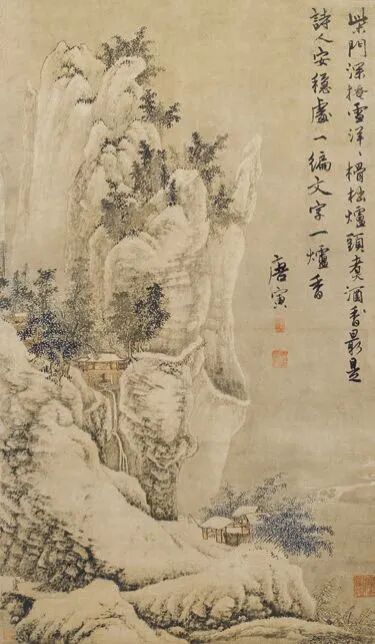 柴門深掩雪洋ヽ榾柮爐頭煑酒香最是
詩人安穩處一編文字一爐香
唐寅